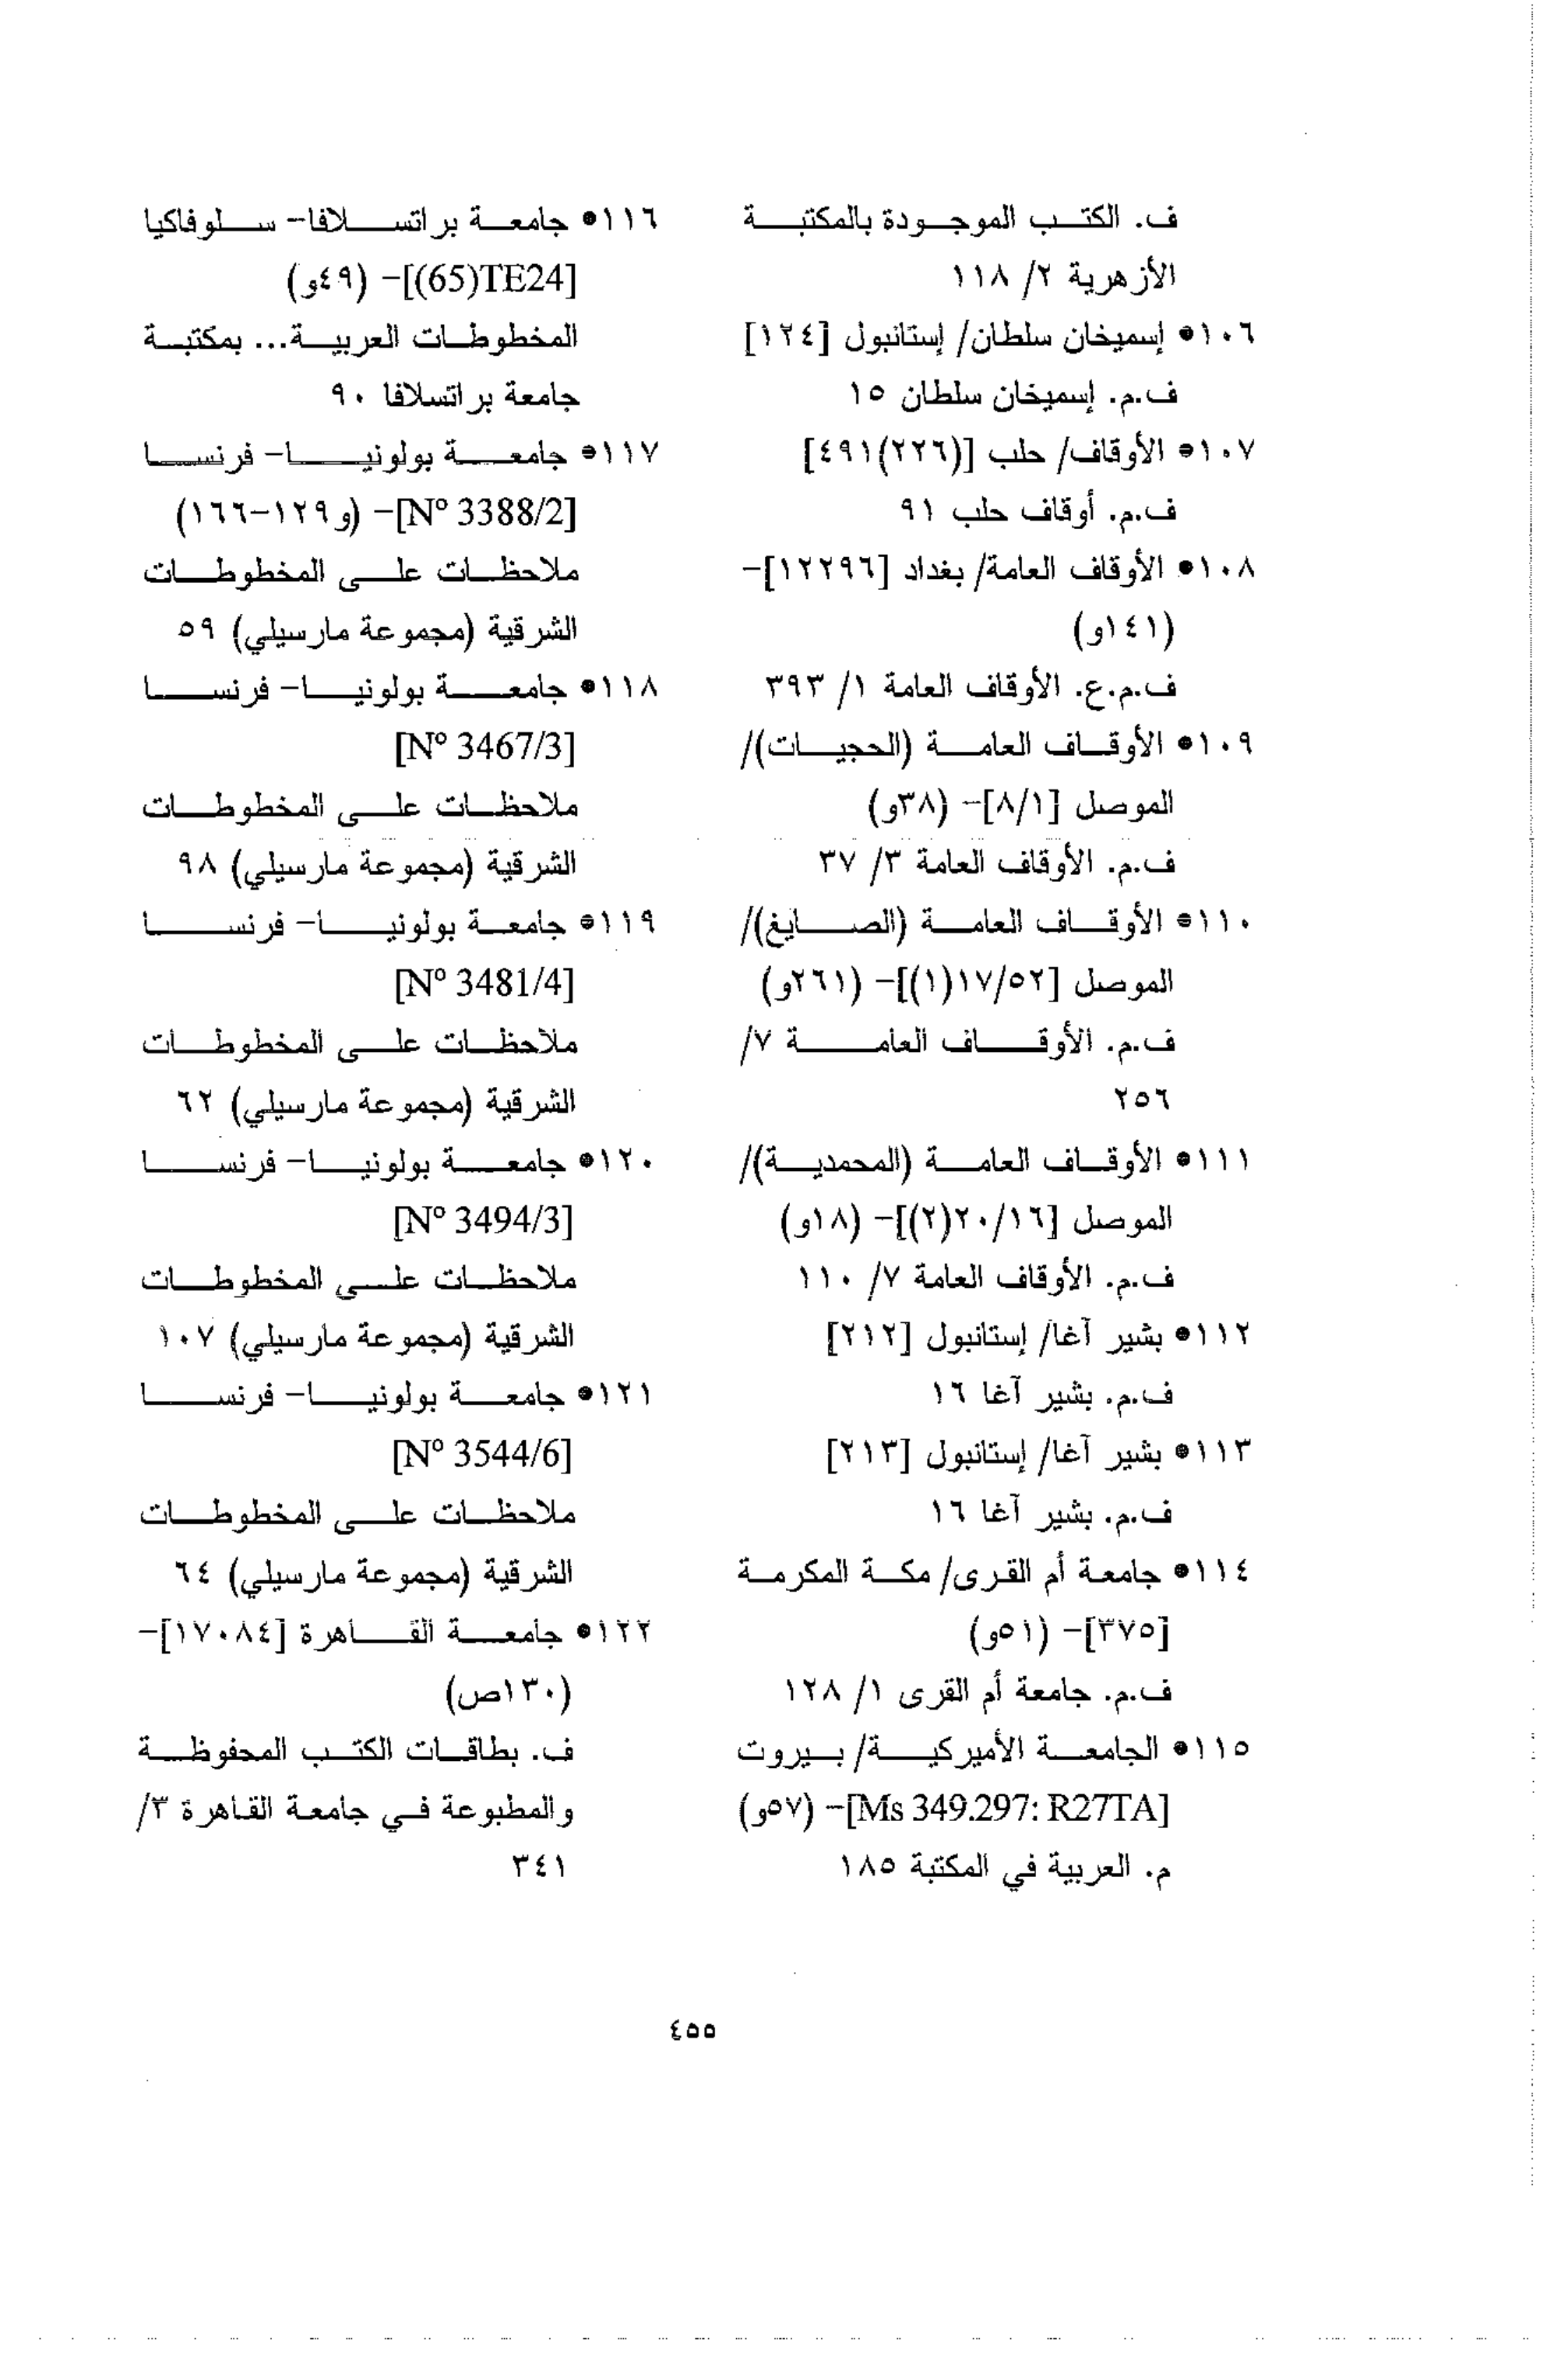 ف. الكتب الموجودة بالمكتبة
الأزهرية ٢/ ١١٨
١٠٦● إسميخان سلطان/ إستانبول [١٢٤]
ف.م. إسميخان سلطان ١٥
١٠٧● الأوقاف/ حلب [(٢٢٦)٤٩١]
ف.م. أوقاف حلب ٩١
١٠٨● الأوقاف العامة/ بغداد [١٢٢٩٦]-
(١٤١و)
ف.م.ع. الأوقاف العامة ١/ ٣٩٣
١٠٩● الأوقاف العامة (الحجيات)/
الموصل [٨/١]- (٣٨و)
ف.م. الأوقاف العامة ٣/ ٣٧
١١٠● الأوقاف العامة (الصايغ)/
الموصل [١٧/٥٢(١)]- (٢٦١و)
ف.م. الأوقاف العامة ٧/
٢٥٦
١١١● الأوقاف العامة (المحمدية)/
الموصل [٢٠/١٦(٢)]- (١٨و)
ف.م. الأوقاف العامة ٧/ ١١٠
١١٢● بشير آغا/ إستانبول [٢١٢]
ف.م. بشير آغا ١٦
١١٣● بشير آغا/ إستانبول [٢١٣]
ف.م. بشير آغا ١٦
١١٤● جامعة أم القرى/ مكة المكرمة
[٣٧٥]- (٥١و)
ف.م. جامعة أم القرى ١/ ١٢٨
١١٥● الجامعة الأميركية/ بيروت
[Ms 349.297: R27TA]- (٥٧و)
م. العربية في المكتبة ١٨٥
١١٦● جامعة براتسلافا- سلوفاكيا
[(65)TE24]- (٤٩و)
المخطوطات العربية... بمكتبة
جامعة براتسلافا ٩٠
١١٧● جامعة بولونيا- فرنسا
[Nº 3388/2]- (و١٢٩-١٦٦)
ملاحظات على المخطوطات
الشرقية (مجموعة مارسيلي) ٥٩
١١٨● جامعة بولونيا- فرنسا
[Nº 3467/3]
ملاحظات على المخطوطات
الشرقية (مجموعة مارسيلي) ٩٨
١١٩● جامعة بولونيا- فرنسا
[Nº 3481/4]
ملاحظات على المخطوطات
الشرقية (مجموعة مارسيلي) ٦٢
١٢٠● جامعة بولونيا- فرنسا
[Nº 3494/3]
ملاحظات على المخطوطات
الشرقية (مجموعة مارسيلي) ١٠٧
١٢١● جامعة بولونيا- فرنسا
[Nº 3544/6]
ملاحظات على المخطوطات
الشرقية (مجموعة مارسيلي) ٦٤
١٢٢● جامعة القاهرة [١٧٠٨٤]-
(١٣٠ص)
ف. بطاقات الكتب المحفوظة
والمطبوعة في جامعة القاهرة ٣/
٣٤١
٤٥٥